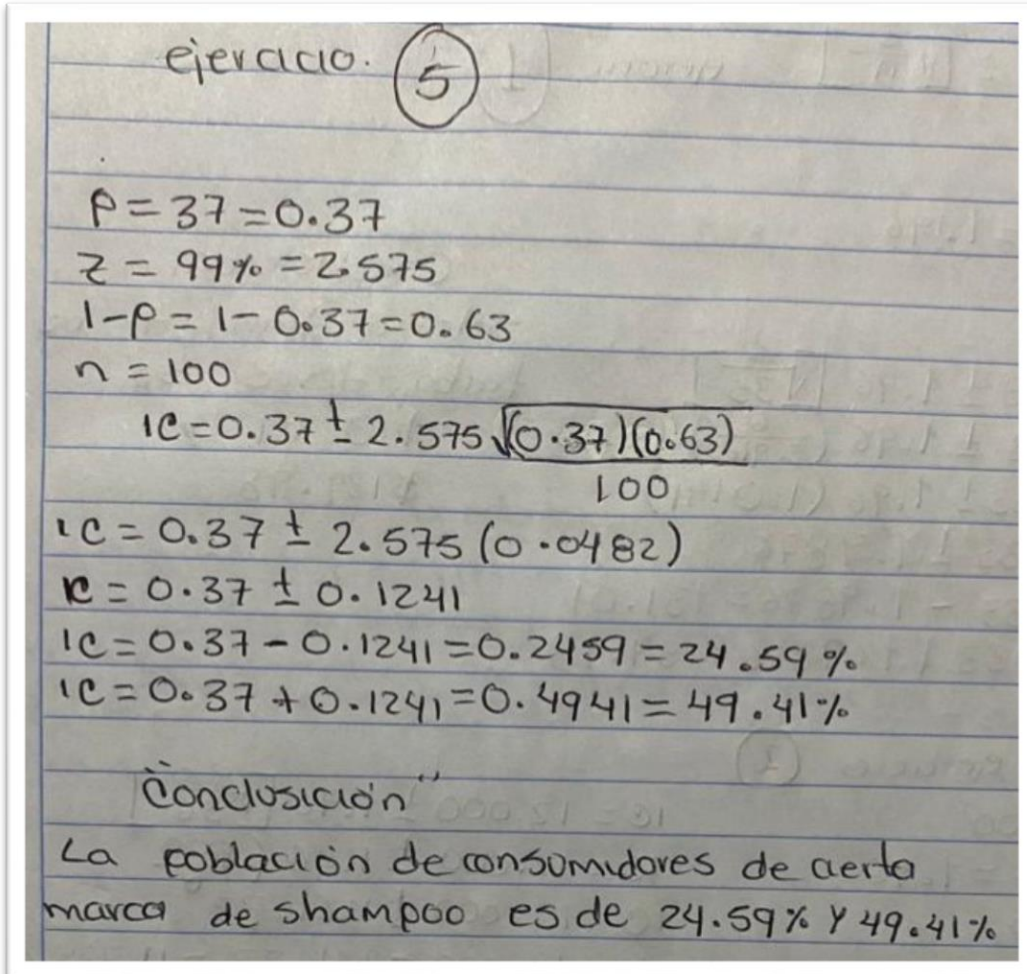 ejercicio. 5
P = 37 = 0.37
z = 99% = 2.575
1-P = 1 - 0.37 = 0.63
n = 100
IC = 0.37 ± 2.575 √(0.37)(0.63)
100
IC = 0.37 ± 2.575 (0.0482)
IC = 0.37 ± 0.1241
IC = 0.37 - 0.1241 = 0.2459 = 24.59%
IC = 0.37 + 0.1241 = 0.4941 = 49.41%
"Conclusición"
La población de consumidores de cierta
marca de shampoo es de 24.59% Y 49.41%